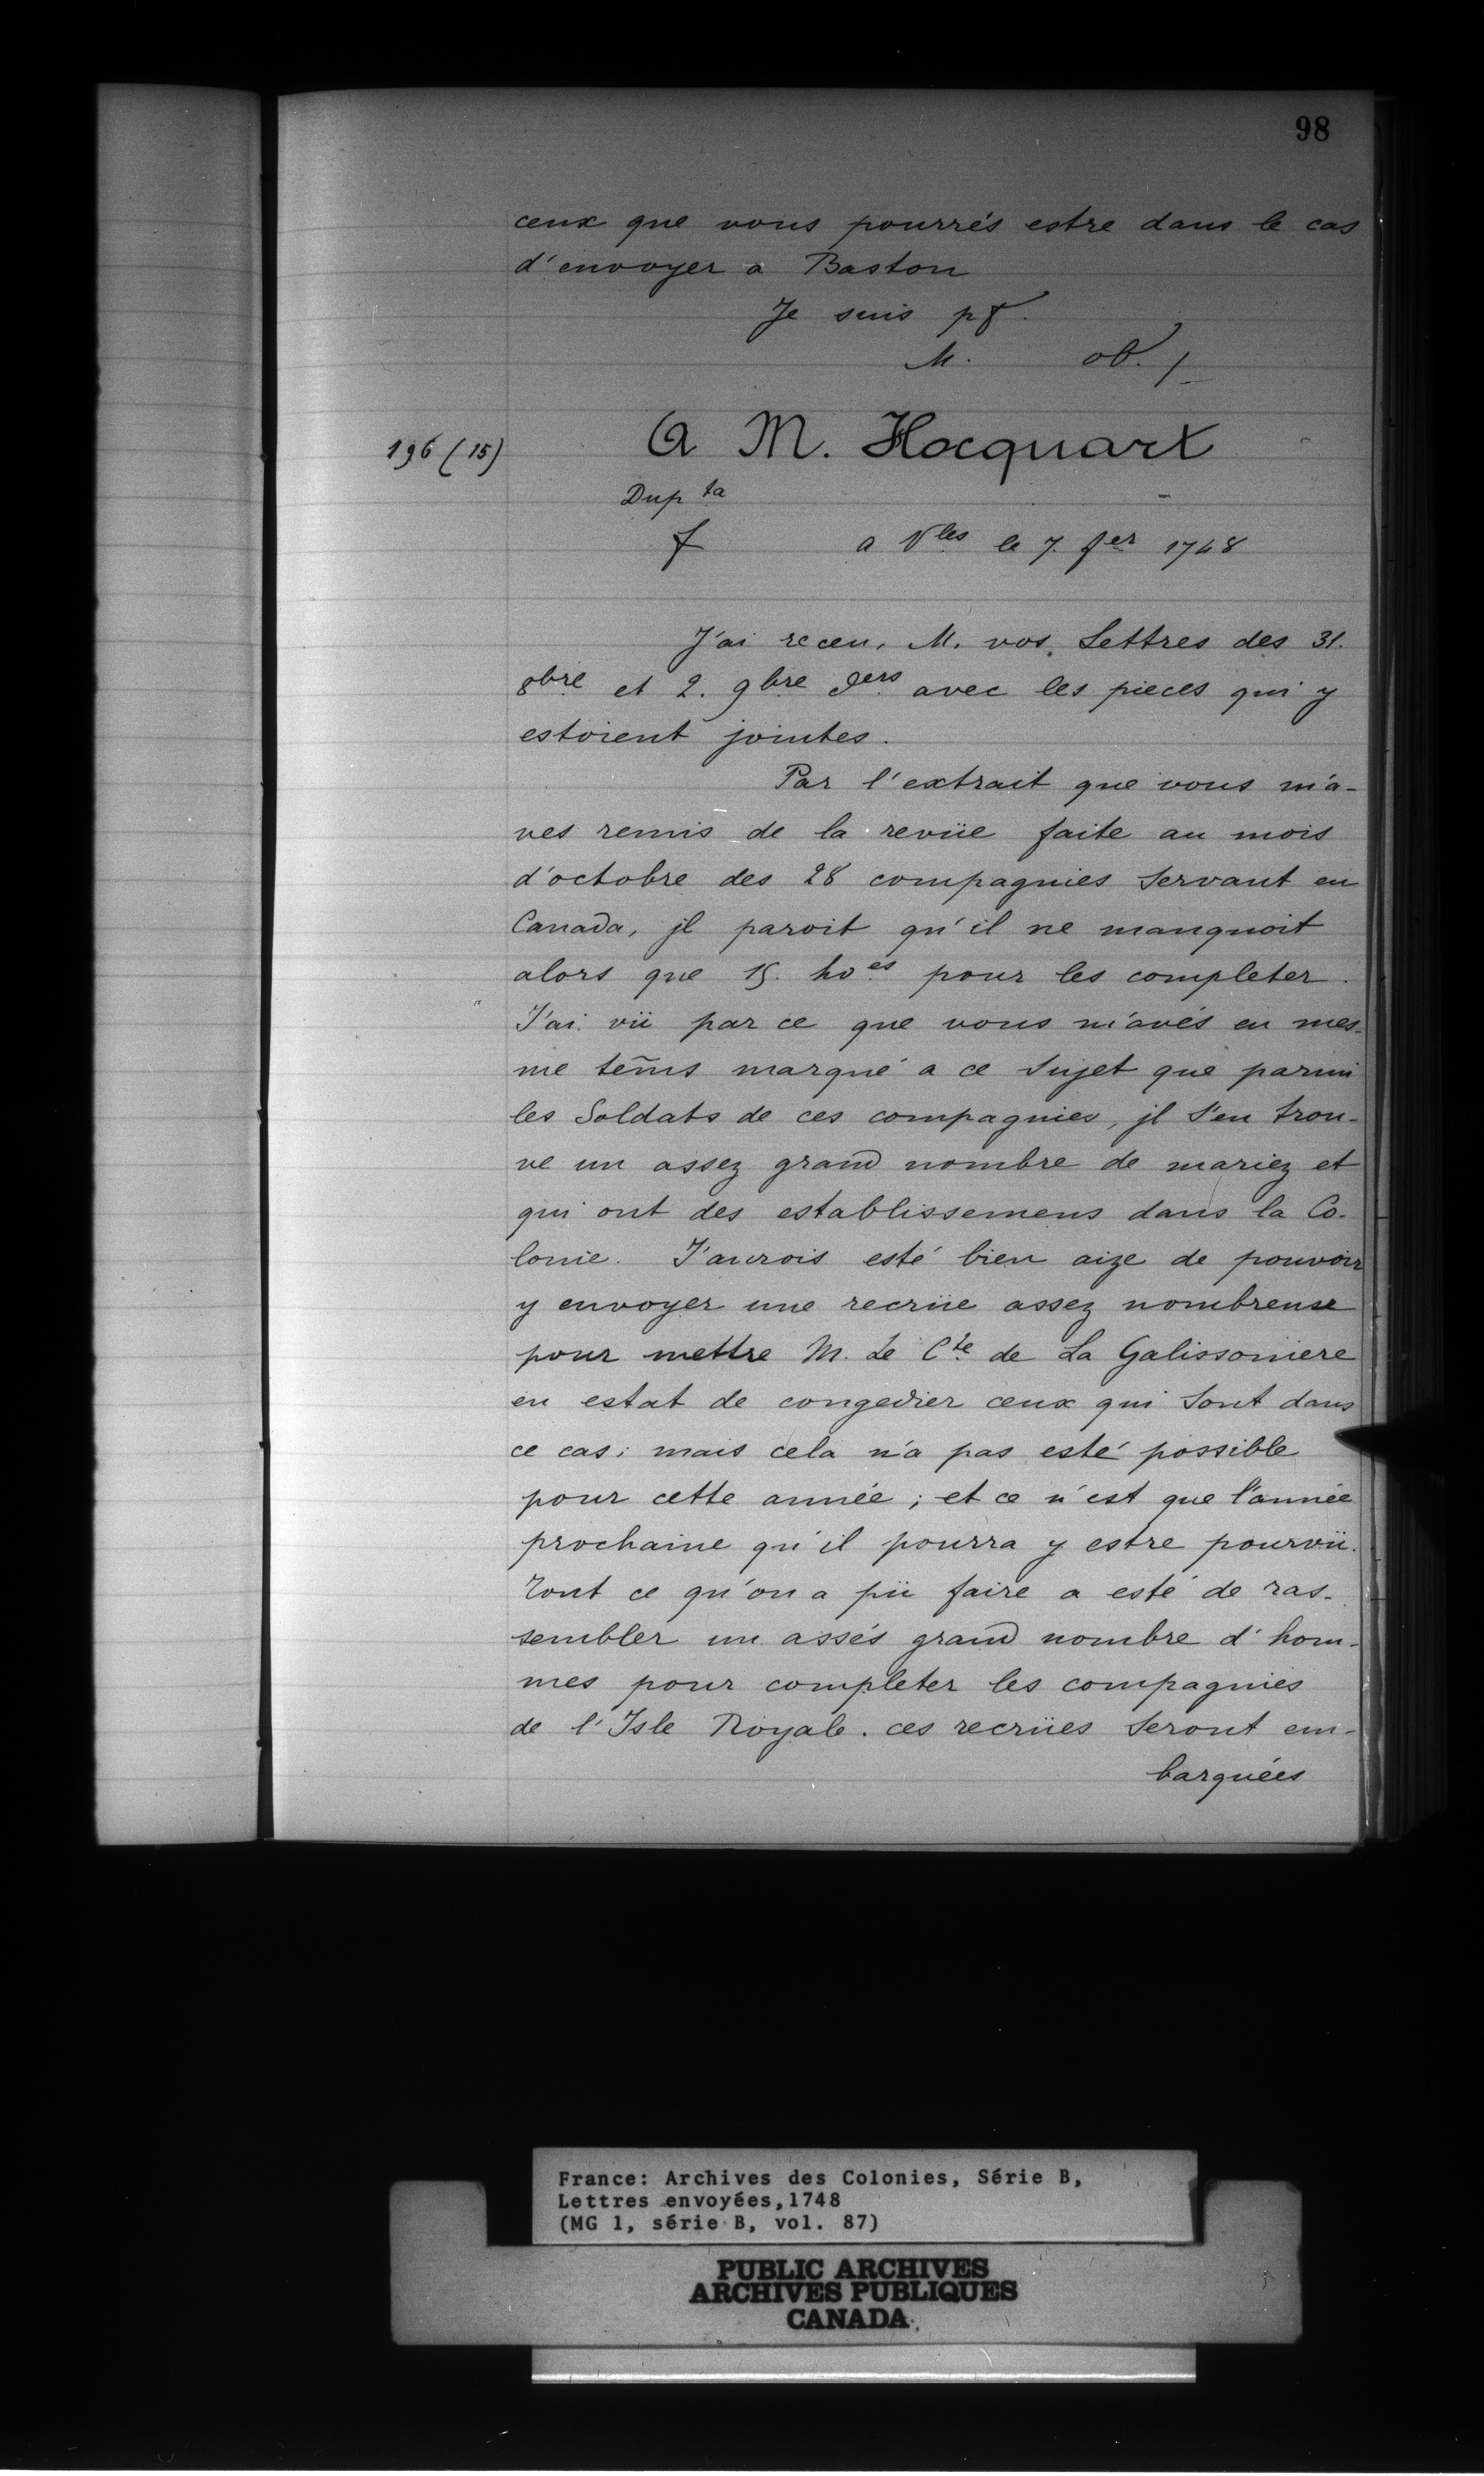 98
ceux que vous pourrés estre dans le cas
d'envoyer a Baston
Je suis pf.
M. ob. /-
A M. Hocquart
196 (15)
Dup ta
f a Vles le 7. fer 1748
J'ai receu, M. vos Lettres des 31.
8bre et 2. 9bre ders avec les pieces qui y
estoient jointes.
Par l'extrait que vous m'a-
ves remis de la revüe faite au mois
d'octobre des 28 compagnies servant en
Canada, jl paroit qu'il ne manquoit
alors que 15. hoes pour les completer.
J'ai vü par ce que vous m'avés en mes-
me tem̃s marqué a ce sujet que parmi
les Soldats de ces compagnies, jl s'en trou-
ve un assez grand nombre de mariez et
qui ont des establissemens dans la Co-
lonie. J'aurois esté bien aize de pouvoir
y envoyer une recrüe assez nombreuse
pour mettre M. Le Cte de La Galissoniere
en estat de congedier ceux qui sont dans
ce cas; mais cela n'a pas esté possible
pour cette année; et ce n'est que l'année
prochaine qu'il pourra y estre pourvü.
Tout ce qu'on a pü faire a esté de ras-
sembler un assés grand nombre d'hom-
mes pour completer les compagnies
de l'Isle Royale. ces recrües seront em-
barquées
France: Archives des Colonies, Série B,
Lettres envoyées, 1748
(MG 1, série B, vol. 87)
PUBLIC ARCHIVES
ARCHIVES PUBLIQUES
CANADA